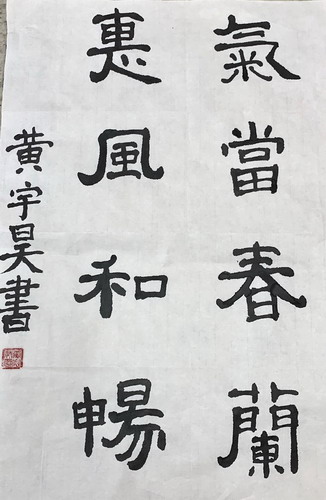 氣當春蘭
惠風和暢
黄宇昊書